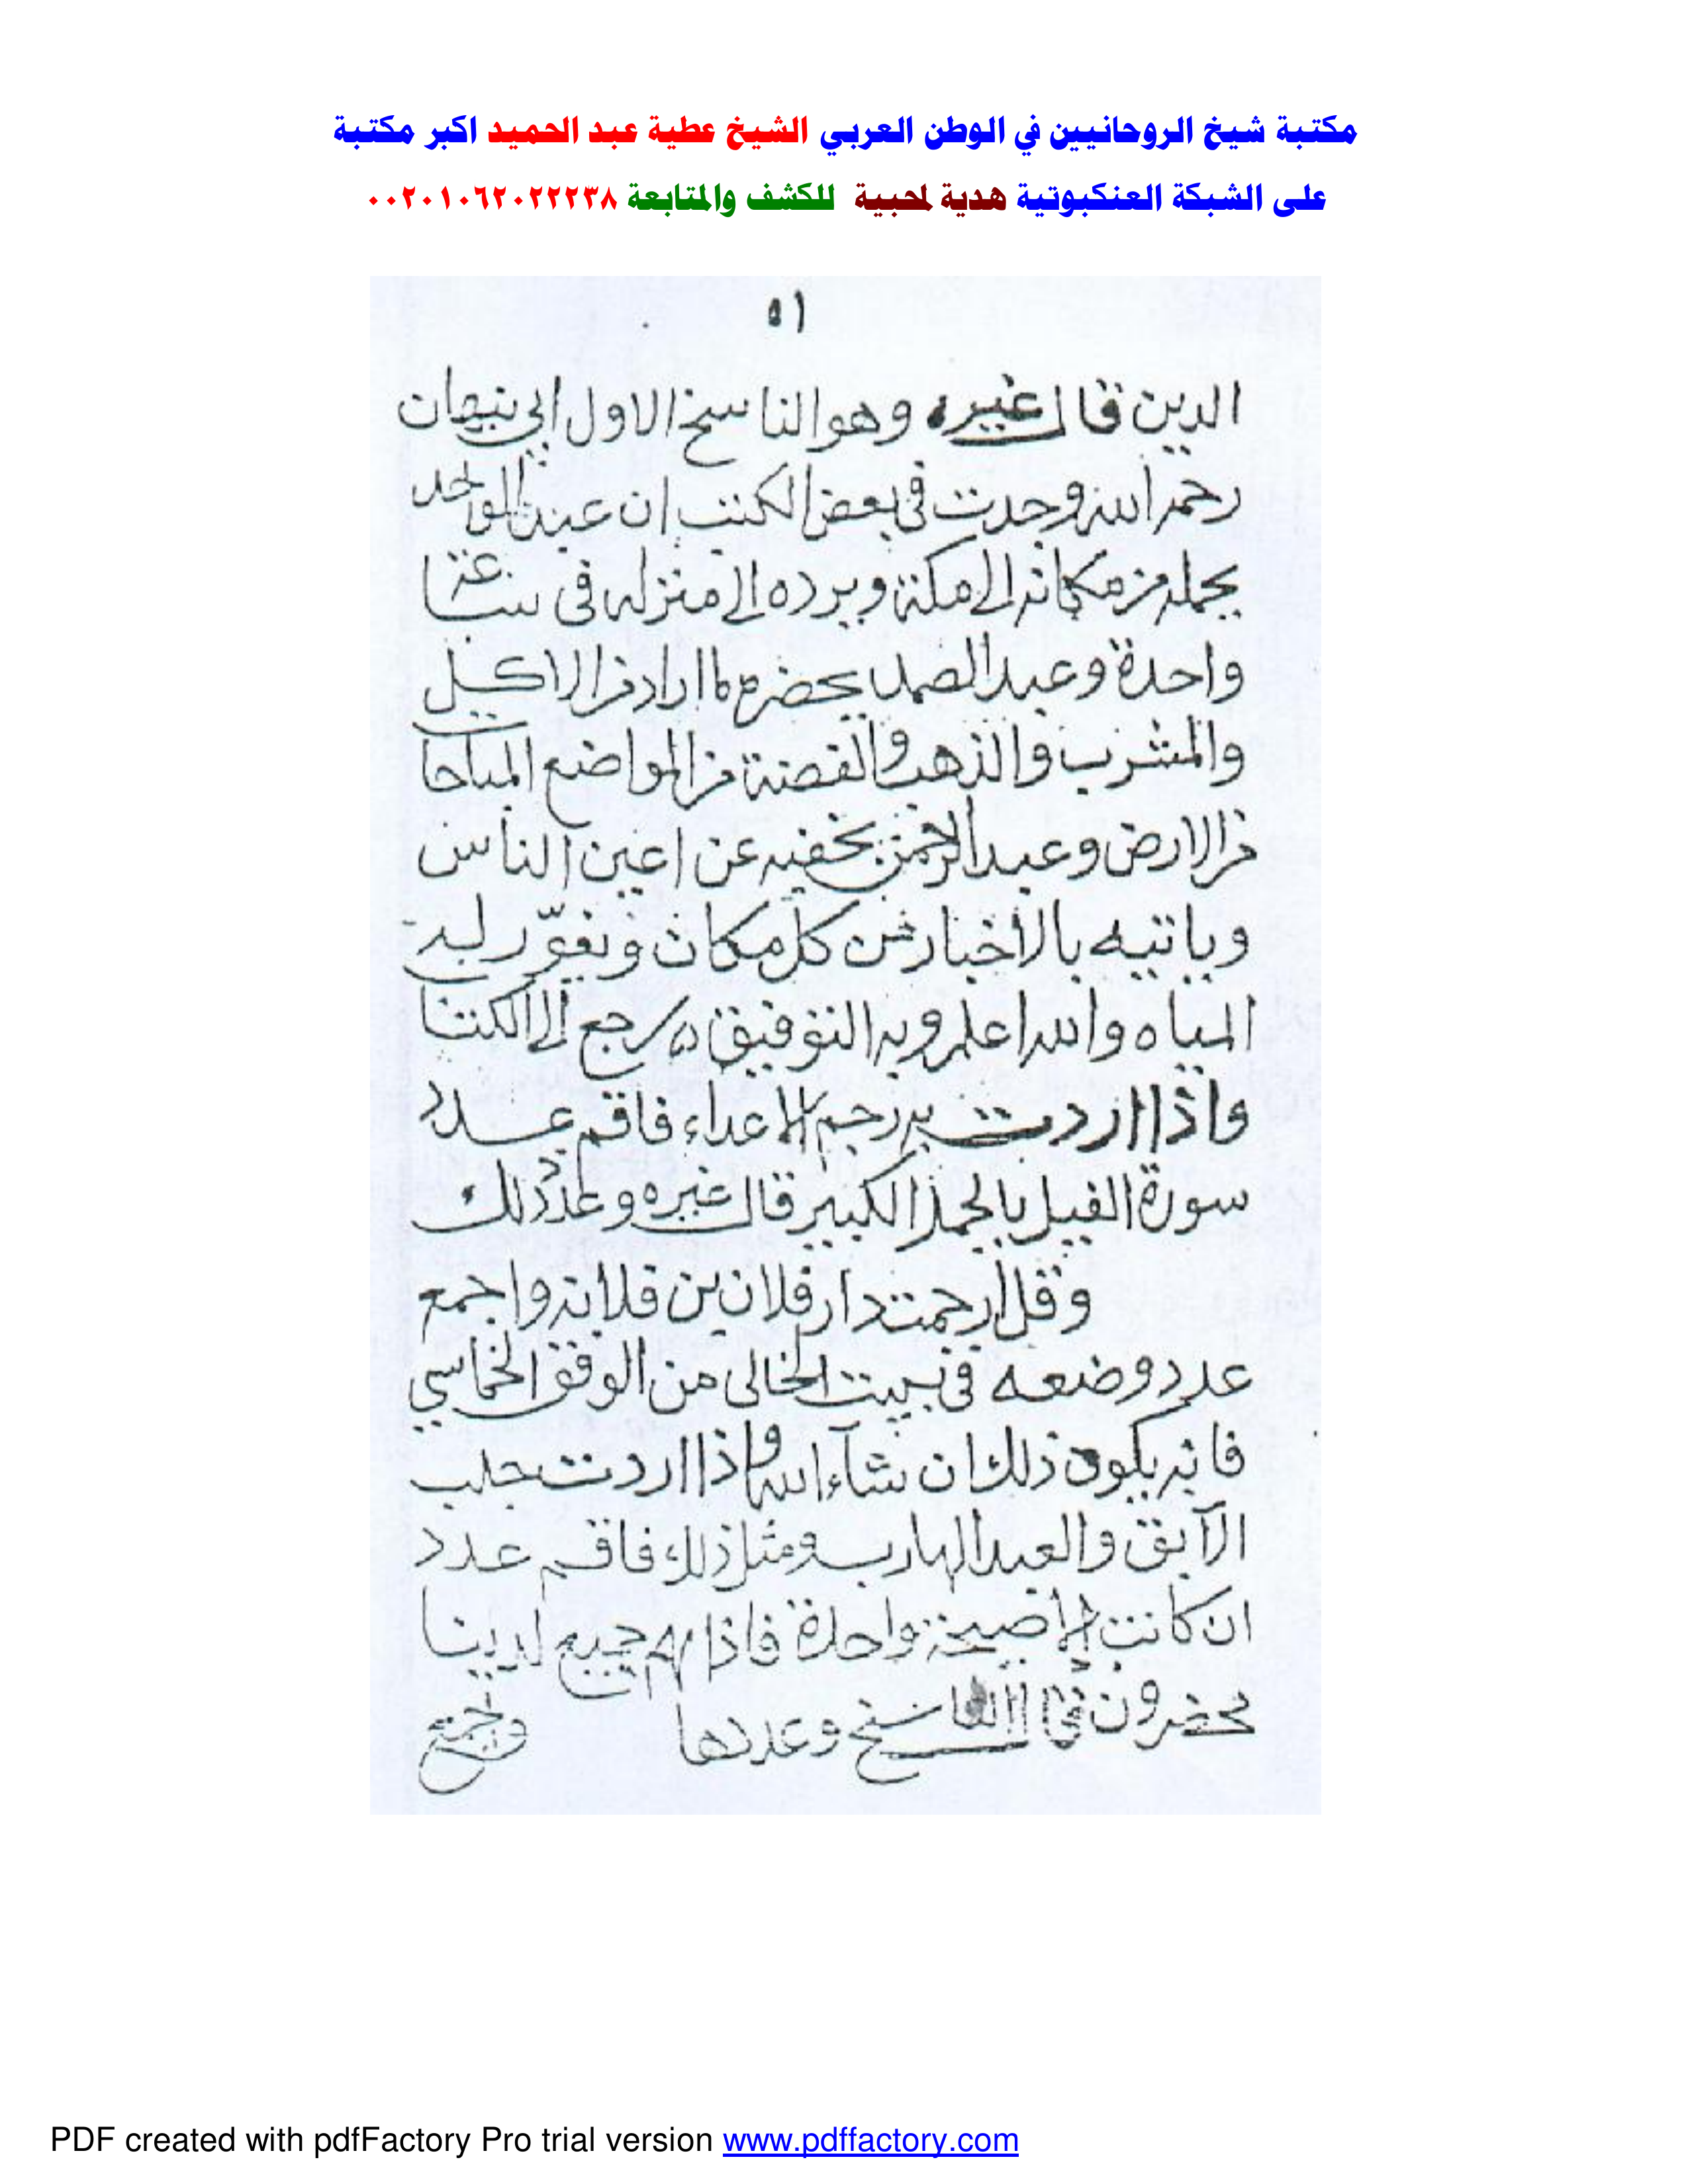 مكتبة شيخ الروحانيين في الوطن العربي الشيخ عطية عبد الحميد اكبر مكتبة
على الشبكة العنكبوتية هدية لمحبية للكشف والمتابعة ٠٠٢٠١٠٦٢٠٢٢٢٣٨
٥١
الدين قال غيره وهو الناسخ الاول ابي نبهان
رحمه الله وجدت في بعض الكتب ان عبد الواحد
يحمله من مكانه الى مكة ويرده الى منزله في ساعة
واحدة وعبد الصمد يحضر ما اراد من الاكل
والمشرب والذهب والفضة من المواضع المباحا
من الارض وعبد الرحمن يخفيه عن اعين الناس
وياتيه بالاخبار من كل مكان ويغوّر له
المياه والله اعلم وبه التوفيق رجع الى الكتا
واذا اردت به رجم الاعداء فاقم عدد
سورة الفيل بالجمل الكبير قال غيره وعدد ذلك
وقل رجمت دار فلان بن فلانه واجمع
عدد وضعه في بيت الخالى من الوفق الخماسي
فانه يكون ذلك ان شآء الله واذا اردت جلب
الآبق والعبد الهارب ومثل ذلك فاقم عدد
ان كانت الا صيحة واحدة فاذا هم جميع لدينا
محضرون قال الناسخ وعددها وجميع
PDF created with pdfFactory Pro trial version www.pdffactory.com